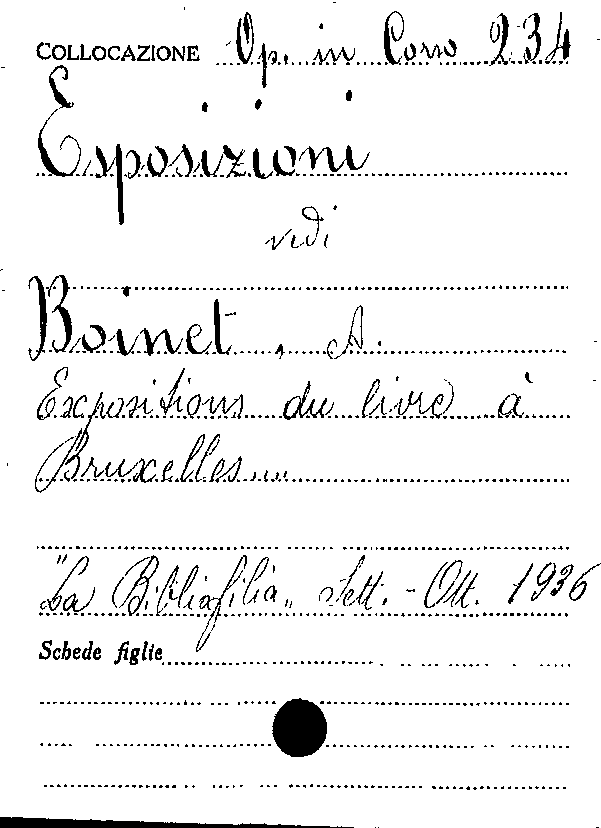 COLLOCAZIONE Op. in Corso 234
Esposizioni
vedi
Boinet, A.
Expositions du livre à
Bruxelles....
"La Bibliofilia„ Sett. - Ott. 1936
Schede figlie